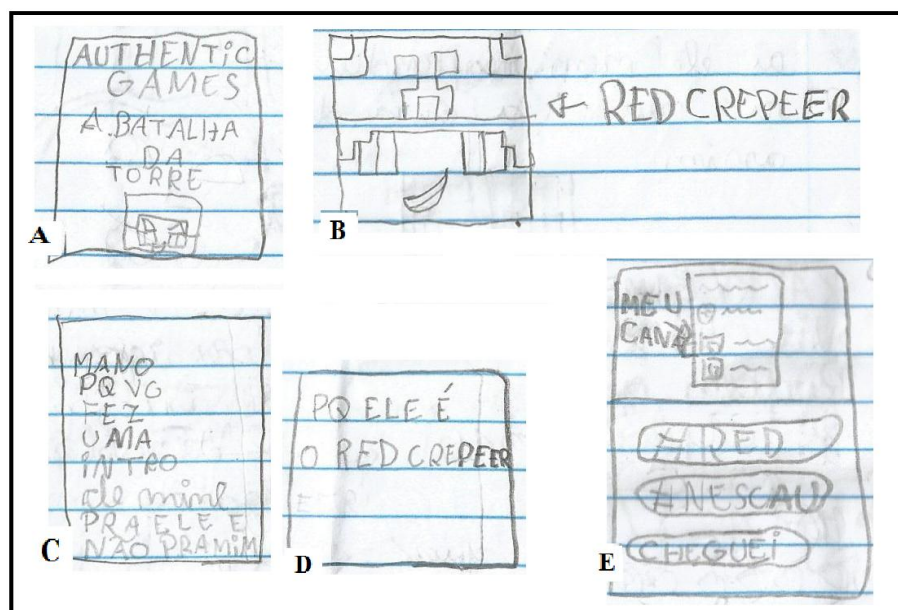 AUTHENTIC
GAMES
A BATALHA
DA
TORRE
A
B
← RED CREPEER
MANO
PQ VC
FEZ
UMA
INTRO
de mine
PRA ELE E
NÃO PRA MIM
C
PQ ELE É
O RED CREPEER
D
MEU
CANAL
#RED
#NESCAU
CHEGUEI
E